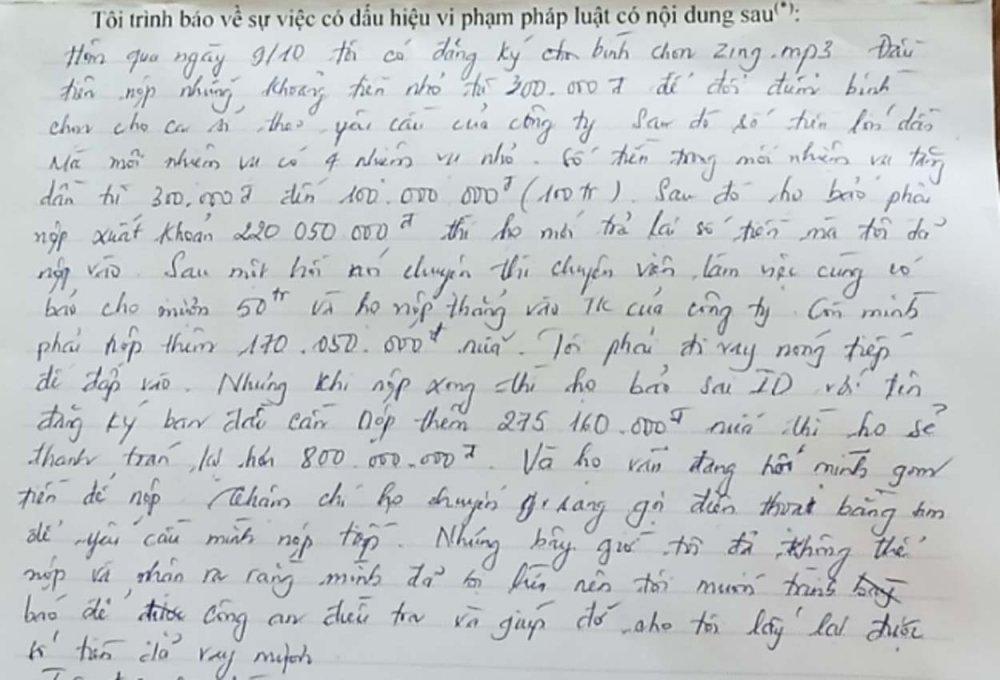 Tôi trình báo về sự việc có dấu hiệu vi phạm pháp luật có nội dung sau(*):
Hôm qua ngày 9/10 tôi có đăng ký bình chọn zing.mp3 Đầu
tiên nộp những khoảng tiền nhỏ từ 300.000đ để đổi điểm bình
chọn cho ca sĩ theo yêu cầu của công ty Sau đó số tiền lớn dần
Mà mỗi nhiệm vụ có 4 nhiệm vụ nhỏ. Số tiền trong mỗi nhiệm vụ tăng
dần từ 300.000đ đến 100.000 000đ (100tr). Sau đó họ bảo phải
nộp xuất khoản 220 050 000đ thì họ mới trả lại số tiền mà tôi đã
nộp vào. Sau một hồi nói chuyện thì chuyên viên làm việc cùng có
báo cho mượn 50tr và họ nộp thẳng vào TK của công ty. Còn mình
phải nộp thêm 170.050.000đ nữa. Tôi phải đi vay nóng tiếp
để đắp vào. Nhưng khi nộp xong thì họ bảo sai ID với tên
đăng ký ban đầu cần nộp thêm 275 160.000đ nữa thì họ sẽ
thanh toán lại hơn 800.000.000đ. Và họ vẫn đang hối mình gom
tiền để nộp Thậm chí họ chuyển sang gọi điện thoại bằng
để yêu cầu mình nộp tiếp. Nhưng bây giờ tôi đã không thể
nộp và nhận ra rằng mình đã bị lừa nên tôi muốn trình
báo để công an điều tra và giúp đỡ cho tôi lấy lại được
số tiền đã vay mượn